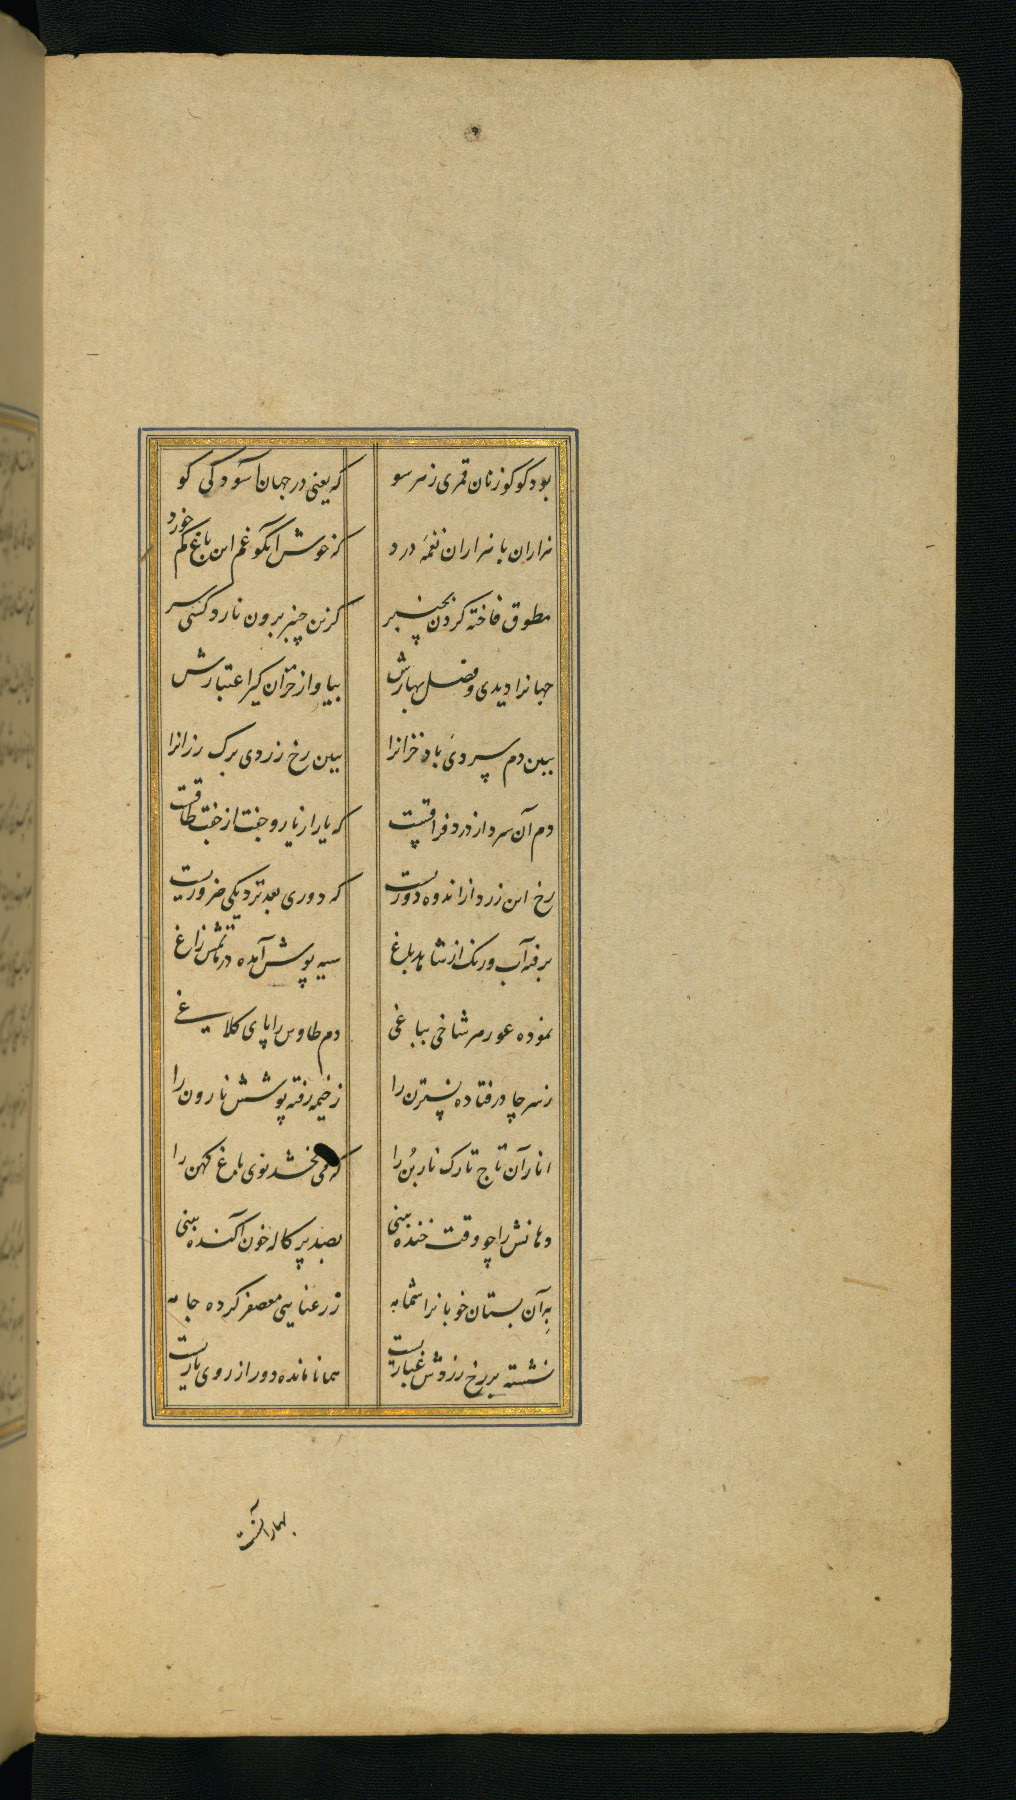 بود کوکو زنان قمری ز هر سو که یعنی در جهان آسودگی کو
هزاران با هزاران نغمهٔ درد که خوش آنکو غم این باغ کم خورد
مطوق فاخته کردن بچنبر کزین چنبر برون نارد کسی سر
جهانرا دیدی و فصل بهارش بیا و از خزان گیر اعتبارش
ببین دم سردی باد خزانرا ببین رخ زردی برک رزانرا
دم آن سرد از درد فراقست که یار از یار و جفت از جفت طاقست
رخ این زرد از اندوه دوریست که دوری بعد نزدیکی ضروریست
برفته آب و رنک از شاهد باغ سیه پوش آمده در ماتمش زاغ
نموده عور هر شاخی بباغی دم طاوس را پای کلاغی
ز سر چادر فتاده نسترن را ز خیمه رفته پوشش نارون را
انار آن تاج تارک ناربن را که می بخشد نوی باغ کهن را
دهانش را چو وقت خنده بینی بصد پرکاله خون آکنده بینی
به آن بستان خوبانرا شمامه ز رعنایی معصفر کرده جامه
نشسته بر رخ زردش غباریست همانا مانده دور از روی یاریست
بهار آنست